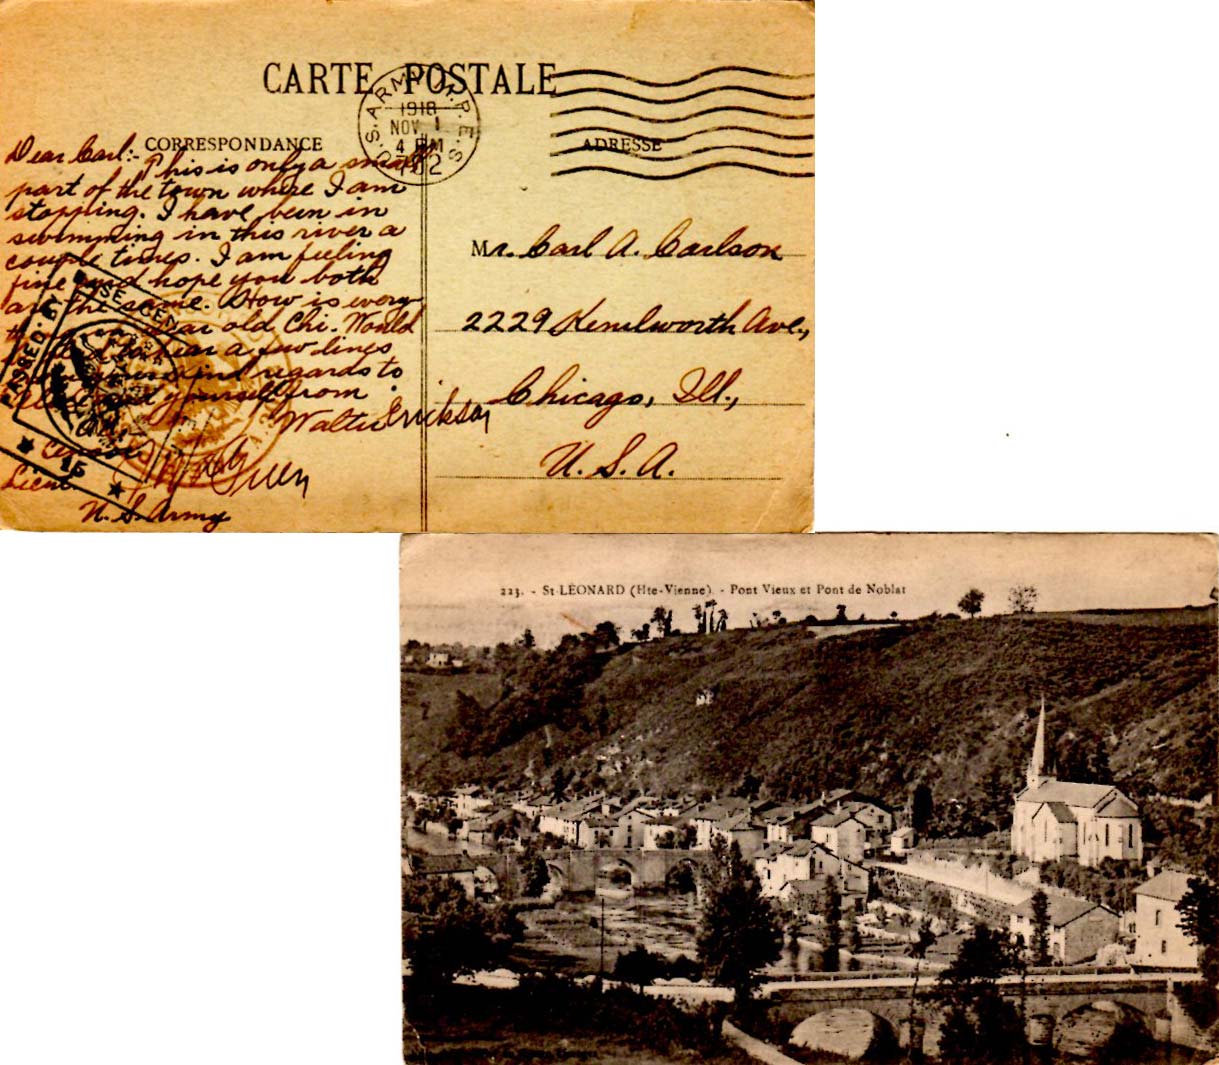 CARTE POSTALE
U.S. ARMY M.P.E.S.
1918
NOV 1
4 PM
702
CORRESPONDANCE
ADRESSE
Dear Carl:- This is only a small
part of the town where I am
stopping. I have been in
swimming in this river a
couple times. I am feeling
fine and hope you both
are the same. How is every
dear old Chi. Would
hear a few lines
kind regards to
and yourself from
Walter Erickson
Censor
Lieut.
U. S. Army
PASSED BY BASE CEN
15
Mr. Carl A. Carlson
2229 Kenilworth Ave.,
Chicago, Ill.,
U. S. A.
223. - St-LÉONARD (Hte-Vienne). - Pont Vieux et Pont de Noblat